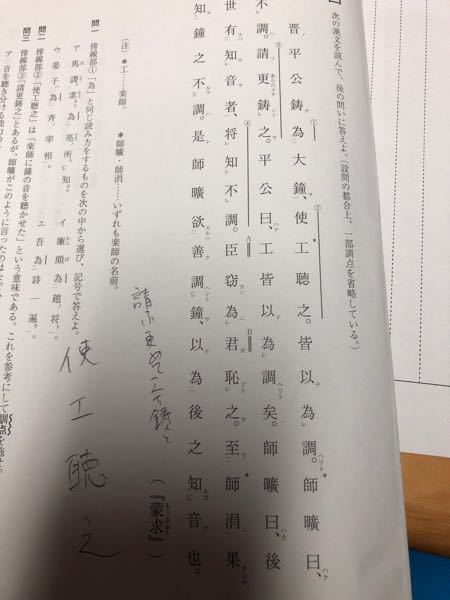 次の漢文を読んで、後の問いに答えよ。(設問の都合上、一部訓点を省略している。)
晋平公鋳為大鐘、使工聴之。皆以為調。師曠曰、
不調。請更鋳之。平公曰、工皆以為調矣。師曠曰、後
世有知音者、将知不調。臣窃為君恥之。至師涓果
知鐘之不調。是師曠欲善調鐘、以為後之知音也。
(『蒙求』)
(注) *工…楽師。 *師曠・師涓……いずれも楽師の名前。
問一 傍線部①「為」と同じ読み方をするものを次の中から選び、記号で答えよ。
ア 馬謖素為亮所知。 イ 廉頗為趙将。
ウ 晏子為斉宰相。 エ 吾為詩一遍。
問二 傍線部②「使工聴之」は「楽師に鐘の音を聴かせた」という意味である。これを参考にして訓点を施せ。
問三 傍線部③「請更鋳之」とあるが、師曠がこのように言ったのは
ア 音を聴き分ける
使工聴之